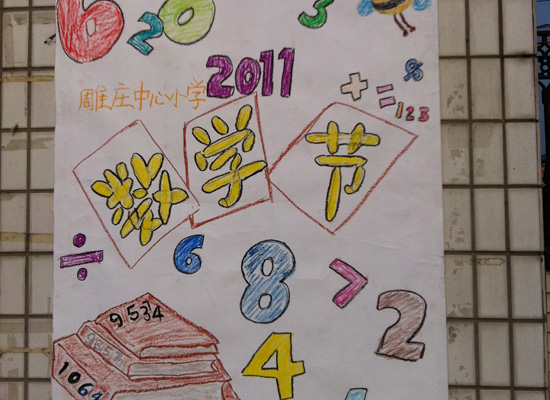 6 2 0 3
2011
雕庄中心小学
+ = %
123
数学节
÷ 6 8 > 2
9534
1064
4